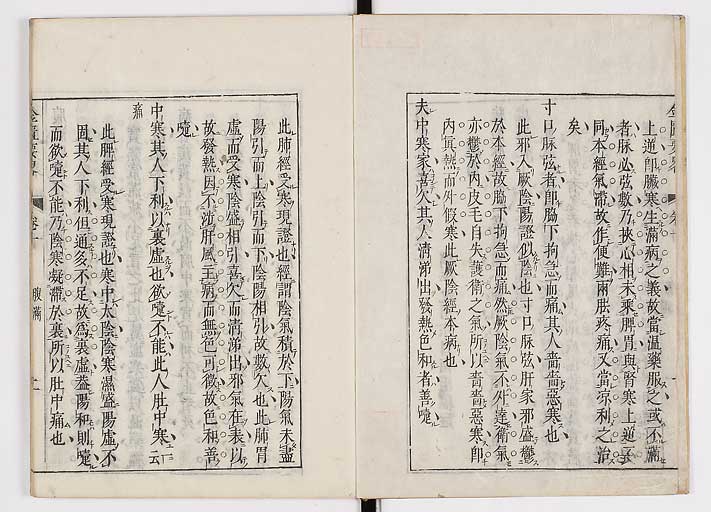 上逆卽臟寒生滿病之義故當溫藥服之或不滿
者脉必弦數乃挾心相未乘脾胃與腎寒上逆
同本經氣滯故作便難兩胠疼痛又當凉利之治
矣
寸口脉弦者卽脇下拘急而痛其人嗇嗇惡寒也
此邪入厥陰陽證似陰也寸口脉弦肝家邪盛鬱
於本經故脇下拘急而痛然厥陰氣不外達衛氣
亦鬱於內皮毛自失護衛之氣所以嗇嗇惡寒卽
內眞熱而外假寒此厥陰經本病也
夫中寒家喜欠其人清涕出發熱色和者善嚏
此肺經受寒現證也經謂陰氣積於下陽氣未盡
陽引而上陰引而下陰陽相引故數欠也此肺胃
虛而受寒陰盛相引喜欠而清涕出邪氣在表以
故發熱因不涉肝風主病而無色可徵故色和善
嚏
中寒其人下利以裏虛也欲嚏不能此人肚中寒一云
痛
此脾經受寒現證也寒中太陰陰寒濕盛陽虛不
固其人下利但通多不足故爲裏虛蓋陽和則嚏
而欲嚏不能乃陰寒凝滯於裏所以肚中痛也
腹滿